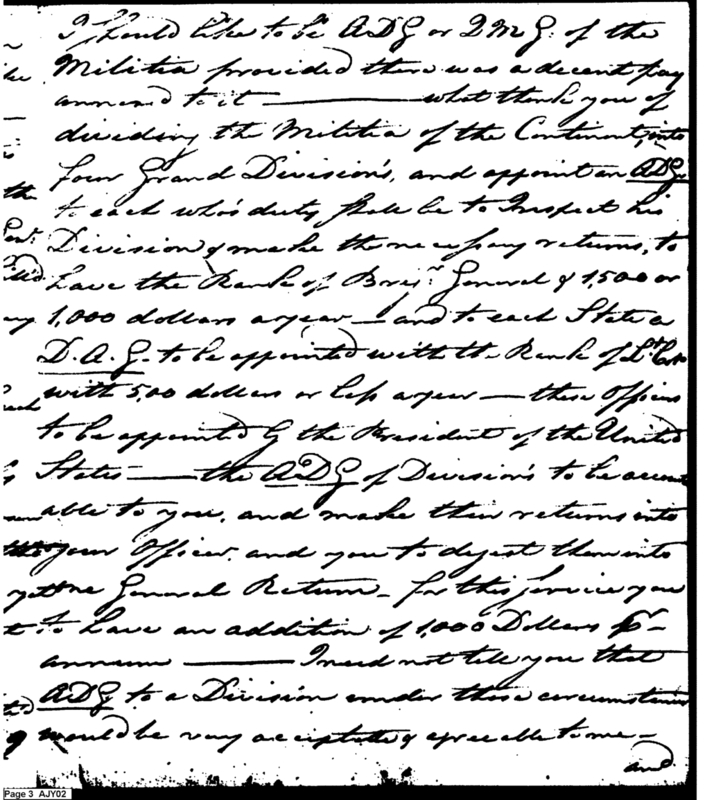 I should like to be ADG or QMG: of the
Militia provided there was a decent pay
annexed to it — what think you of
dividing the Militia of the Continent, into
four Grand Division's, and appoint an ADG
to each who's duty shall be to Inspect his
Division & make the necessary returns, to
have the Rank of Brig.r General & 1,500 or
1,000 dollars a year — and to each State a
D. A. G. to be appointed with the Rank of Lt. Col.
with 500 dollars or less a year — these Officers
to be appointed by the President of the United
States — the ADG of Division's to be account
able to you, and make their returns into
your Officer, and you to digest them into
one General Return — for this service you
to have an addition of 1,000 Dollars pr
annum — I need not tell you that
ADG to a Division under these circumstances
would be very acceptable & agreeable to me —
and
Page 3 AJY02